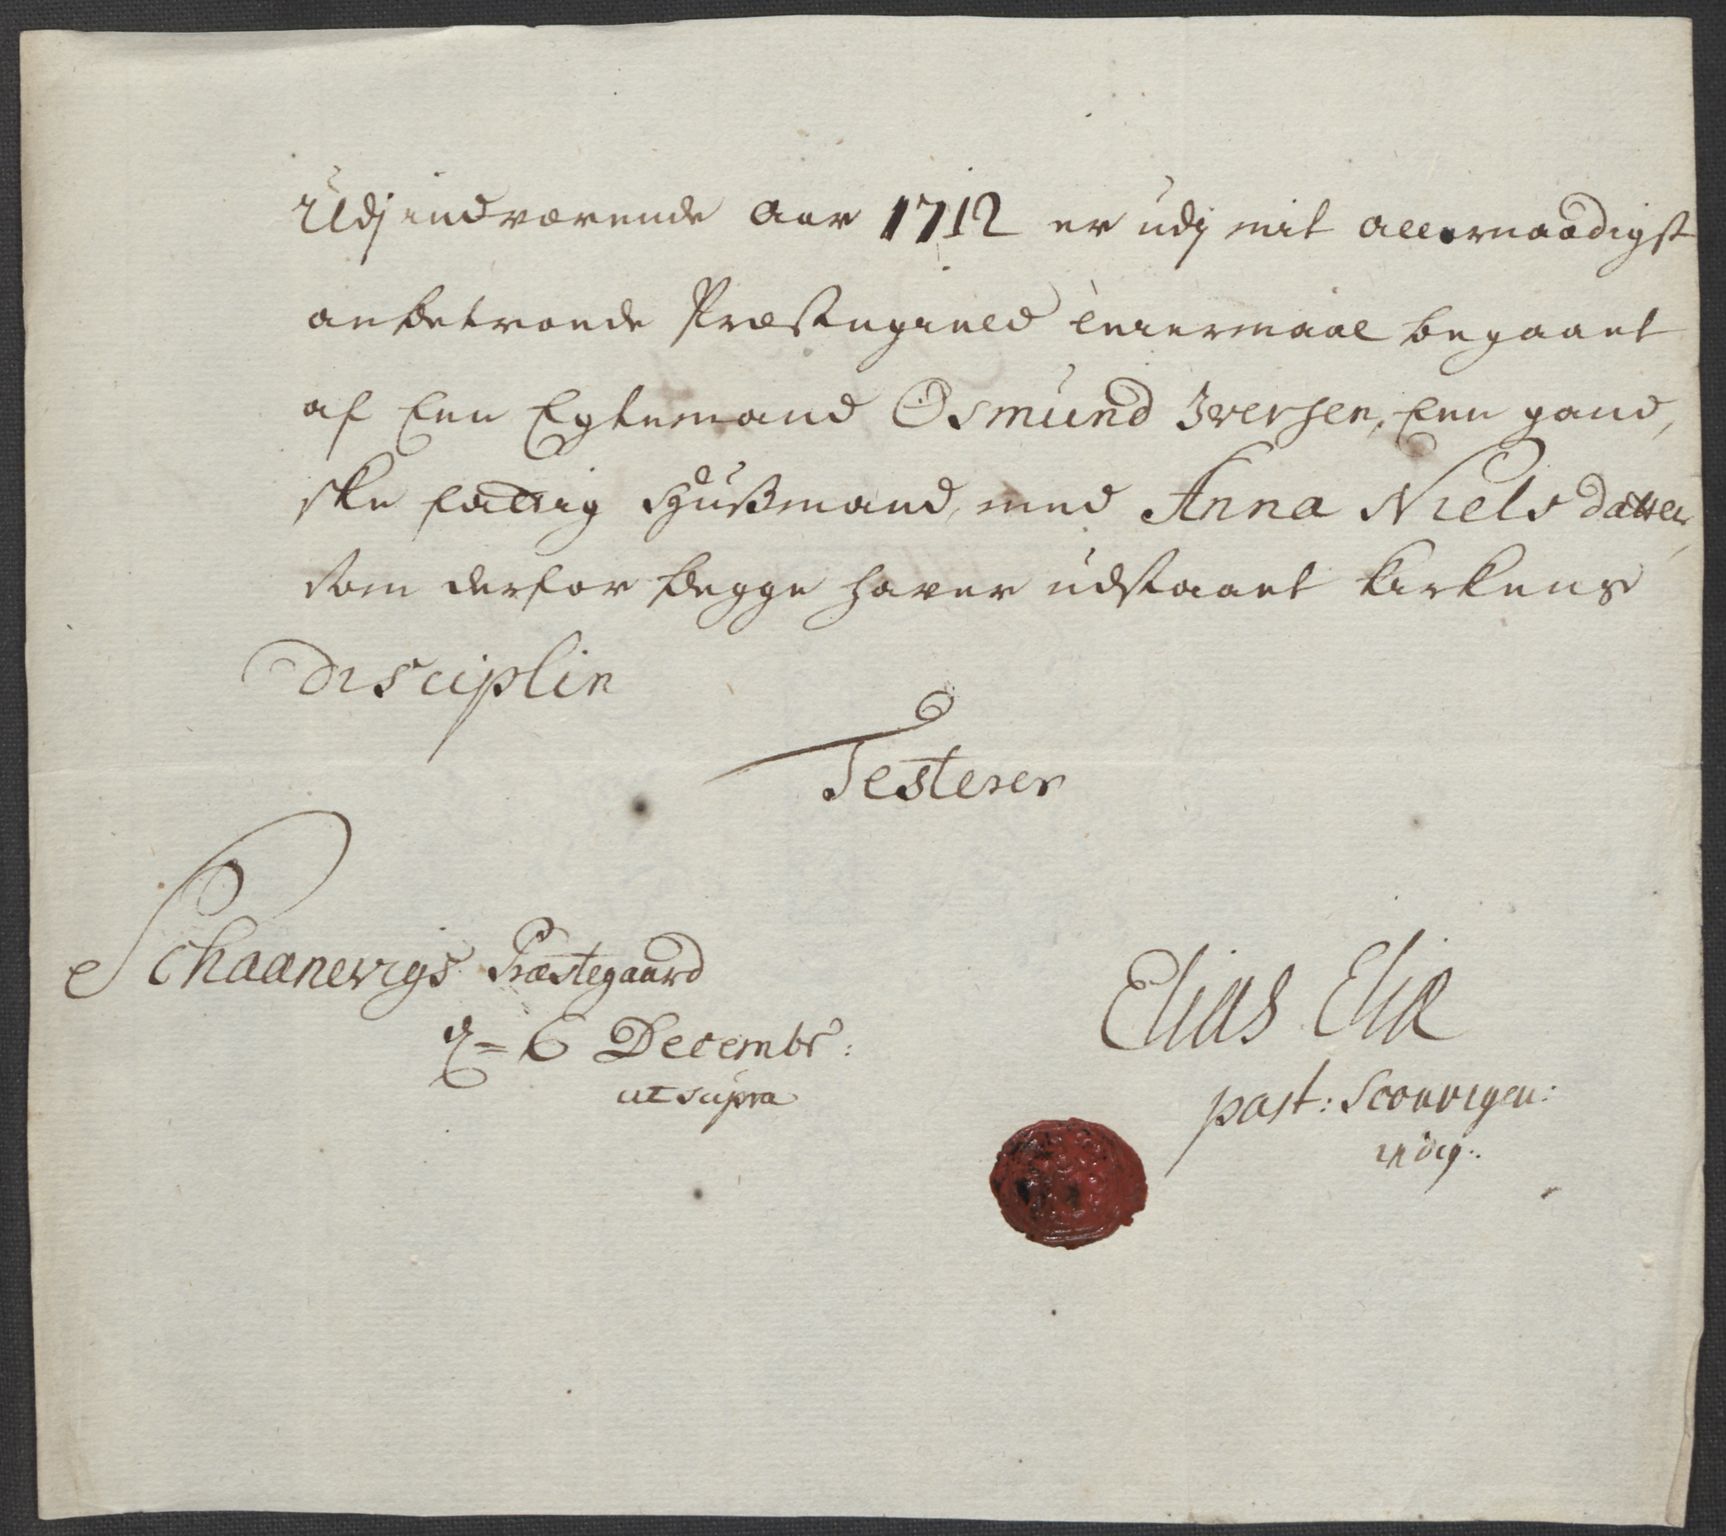 Udj indværende Aar 1712 er udj mit allernaadigst
anbetroede Præstegield leiermaal begaaet
af Een Egtemand Osmund Iversen, Een gand,
ske fattig Huußmand, med Anna Niels datter,
som derfor begge haver udstaaet kirkens
Disciplin
Testerer
Schaanevigs Præstegaard
d= 6 Decembr:
ut supra
Elias Eliæ
past: Scoonvigen:
indig: